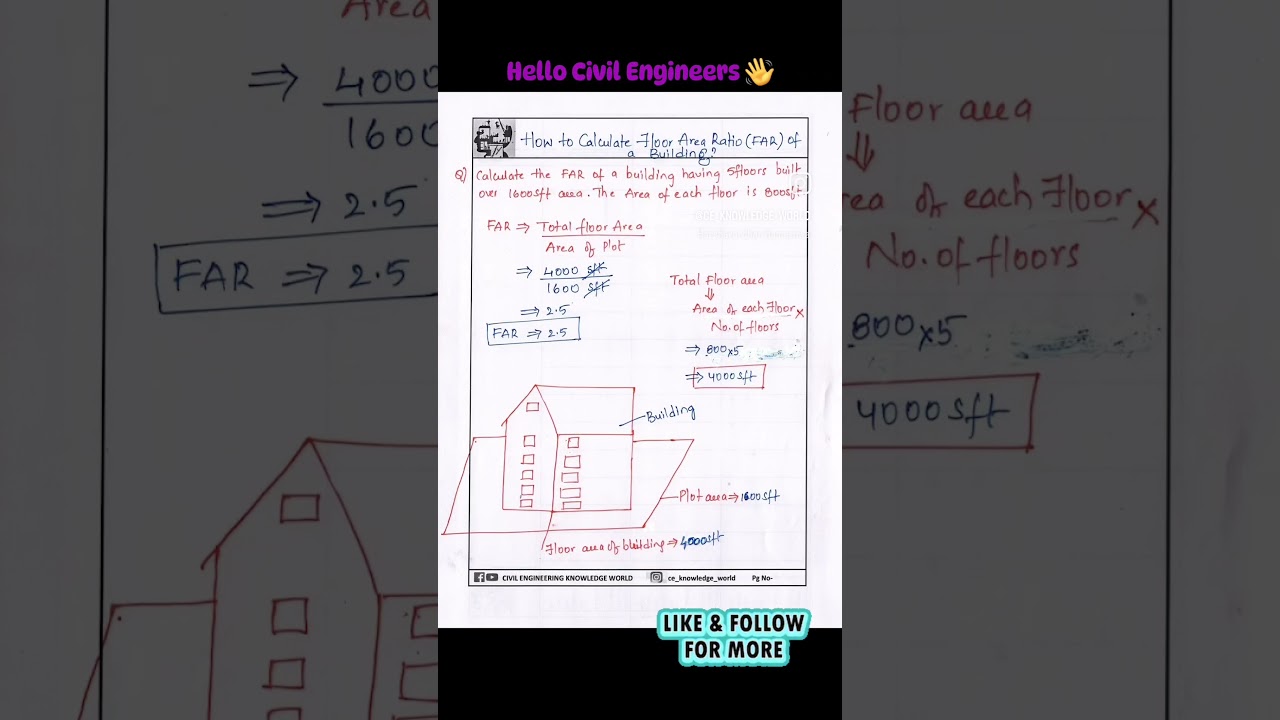 Hello Civil Engineers 👋
How to Calculate Floor Area Ratio (FAR) of
a Building?
Q) Calculate the FAR of a building having 5floors built
over 1600sft area. The Area of each floor is 800sft
FAR ⇒ Total floor Area
Area of Plot
⇒ 4000 sft
1600 sft
⇒ 2.5
FAR ⇒ 2.5
Total Floor area
⇓
Area of each Floor ×
No. of floors
⇒ 800×5
⇒ 4000sft
Building
Plot area ⇒ 1600sft
Floor area of building ⇒ 4000sft
CIVIL ENGINEERING KNOWLEDGE WORLD ce_knowledge_world Pg No-
LIKE & FOLLOW
FOR MORE
Area
⇒ 4000
1600
⇒ 2.5
FAR ⇒ 2.5
Floor area
⇓
rea of each Floor ×
No. of floors
800×5
4000sft